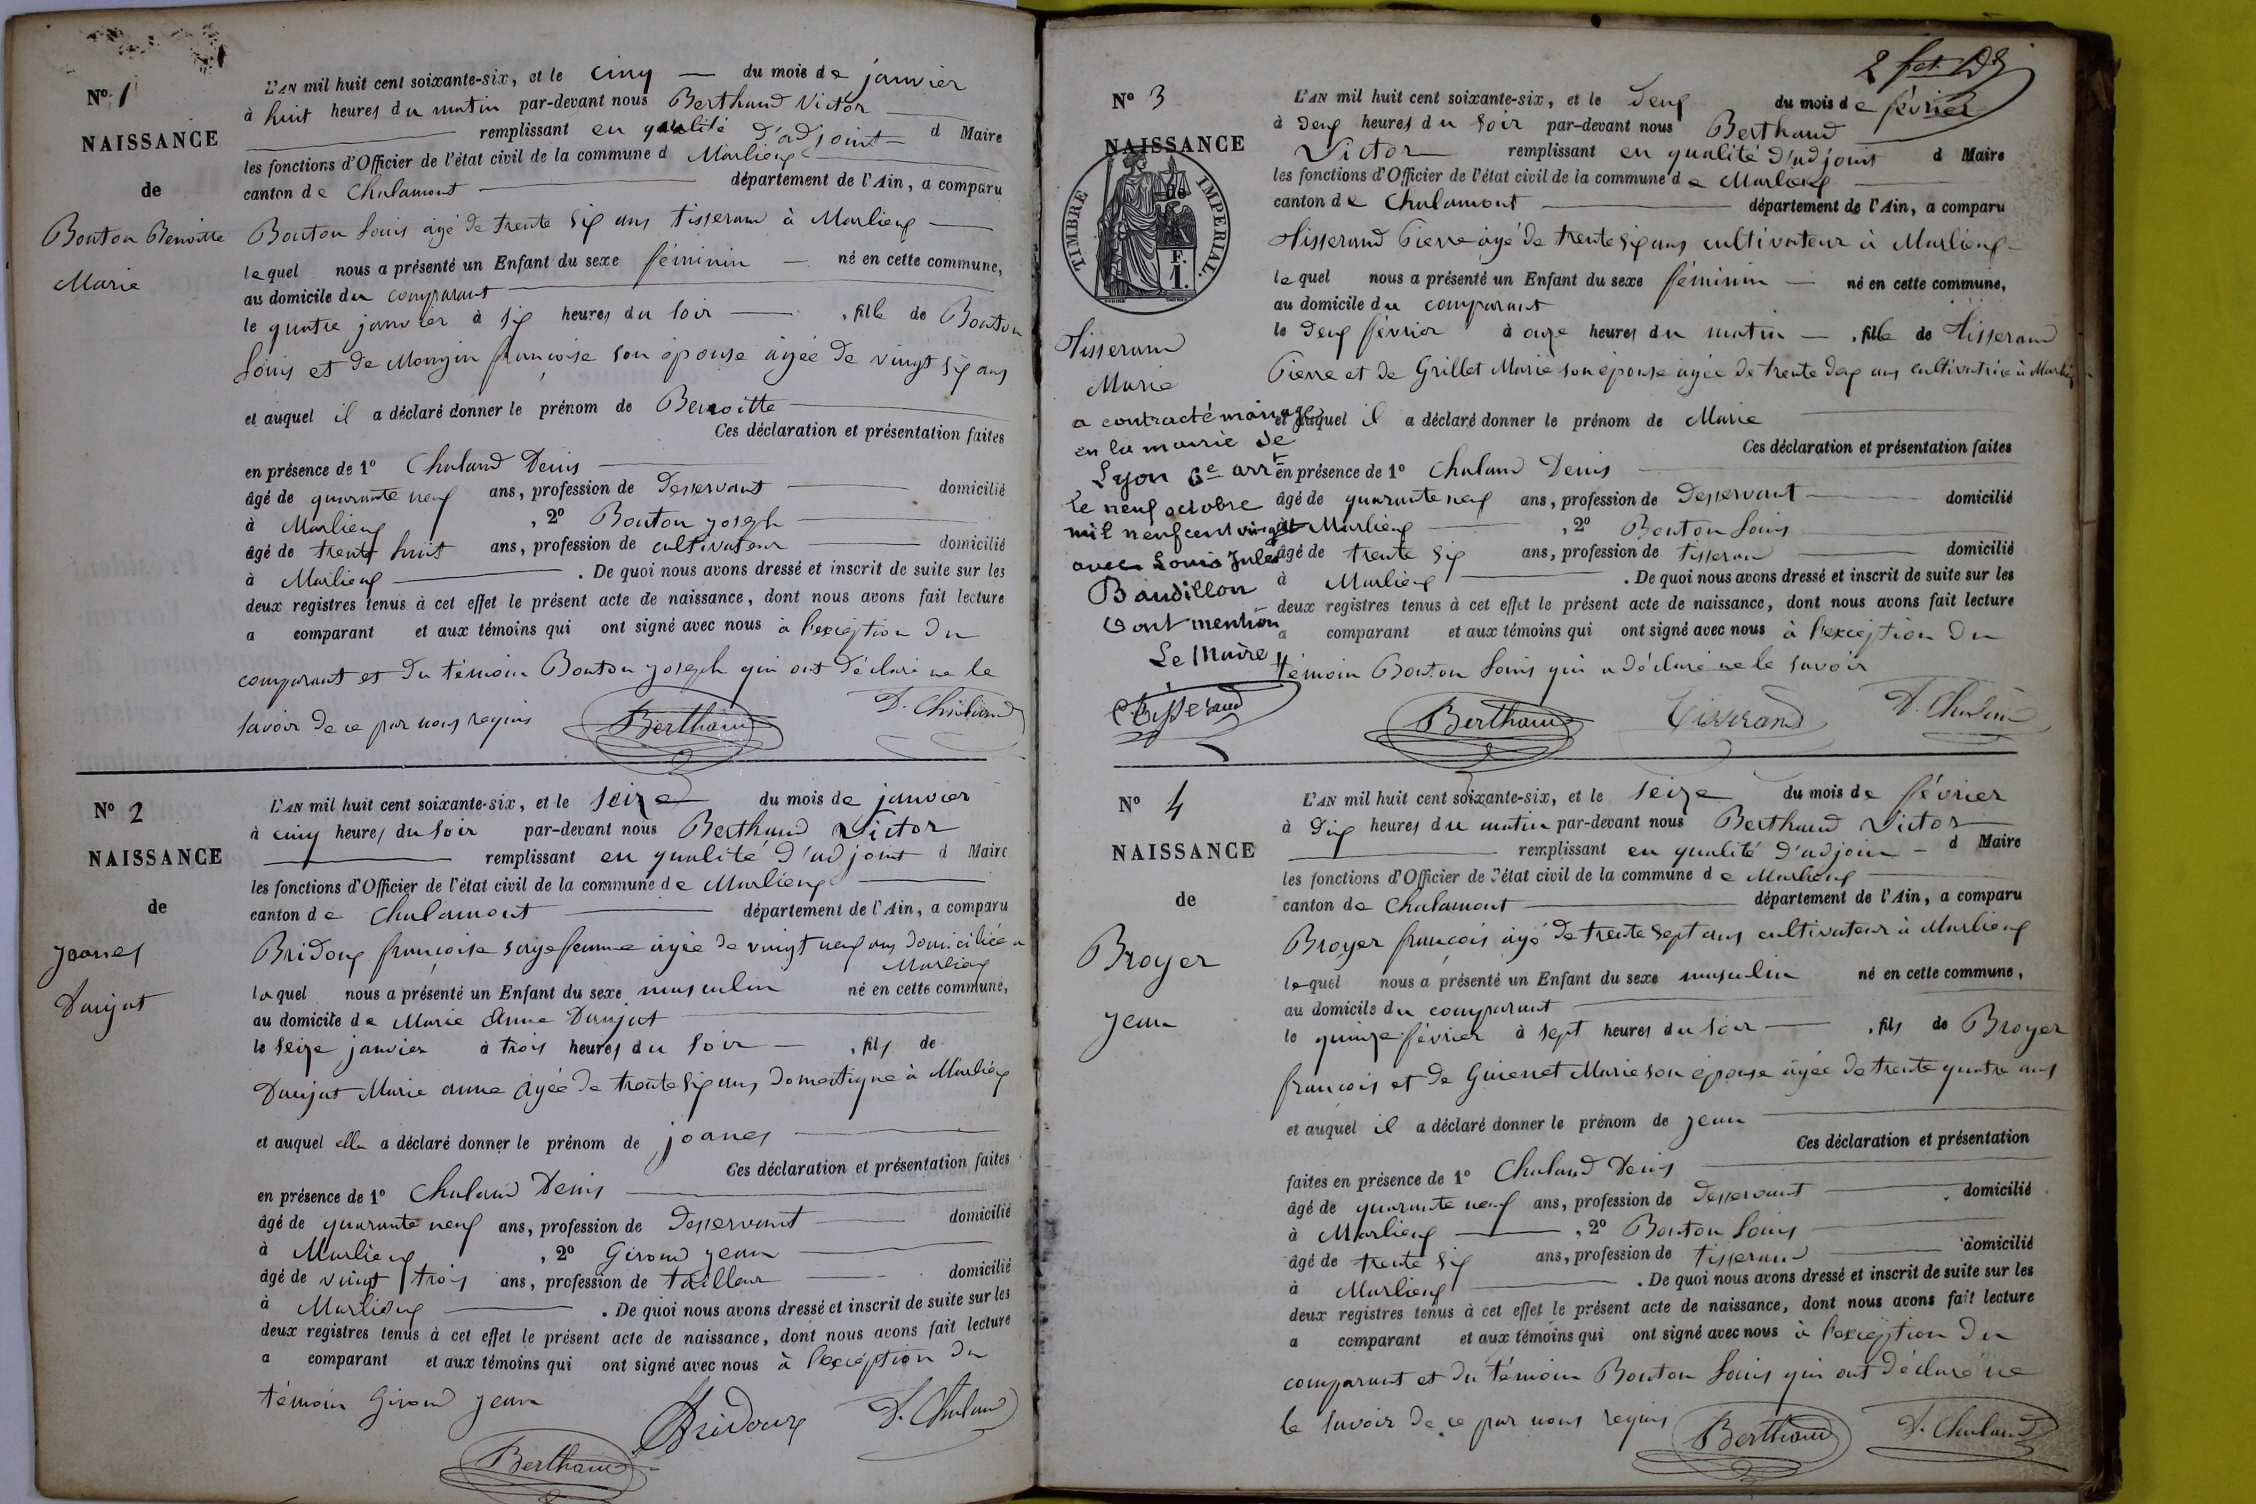 N° 1
NAISSANCE
de
Bouton Benoitte
Marie
L'AN mil huit cent soixante-six, et le cinq du mois de janvier
à huit heures du matin par-devant nous Berthaud Victor
remplissant en qualité d'adjoint d Maire
les fonctions d'Officier de l'état civil de la commune d Marlieux
canton de Chalamont département de l'Ain, a comparu
Bouton Louis âgé de trente six ans tisserand à Marlieux
lequel nous a présenté un Enfant du sexe féminin né en cette commune,
au domicile du comparant
le quatre janvier à six heures du soir, fille de Bouton
Louis et de Mongin françoise son épouse âgée de vingt six ans
et auquel il a déclaré donner le prénom de Benoitte
Ces déclaration et présentation faites
en présence de 1° Chaland Denis
âgé de quarante neuf ans, profession de Desservant domicilié
à Marlieux, 2° Bouton joseph
âgé de trente huit ans, profession de cultivateur domicilié
à Marlieux. De quoi nous avons dressé et inscrit de suite sur les
deux registres tenus à cet effet le présent acte de naissance, dont nous avons fait lecture
a comparant et aux témoins qui ont signé avec nous à l'exception du
comparant et du témoin Bouton joseph qui ont déclaré ne le
savoir de ce par nous requis
Berthaud
D. Chaland
N° 2
NAISSANCE
de
joanes
Daujat
L'AN mil huit cent soixante-six, et le seize du mois de janvier
à cinq heures du soir par-devant nous Berthaud Victor
remplissant en qualité d'adjoint d Maire
les fonctions d'Officier de l'état civil de la commune de Marlieux
canton de Chalamont département de l'Ain, a comparu
Bridoux françoise sage femme âgée de vingt neuf ans domiciliée a
Marlieux
laquel nous a présenté un Enfant du sexe masculin né en cette commune,
au domicile de Marie Anne Daujat
le seize janvier à trois heures du soir, fils de
Daujat Marie anne âgée de trente six ans domestique à Marlieux
et auquel elle a déclaré donner le prénom de joanes
Ces déclaration et présentation faites
en présence de 1° Chaland Denis
âgé de quarante neuf ans, profession de Desservant domicilié
à Marlieux, 2° Giroud jean
âgé de vingt trois ans, profession de tailleur domicilié
à Marlieux. De quoi nous avons dressé et inscrit de suite sur les
deux registres tenus à cet effet le présent acte de naissance, dont nous avons fait lecture
a comparant et aux témoins qui ont signé avec nous à l'exception du
témoin Giroud jean
Bridoux
D. Chaland
Berthaud
N° 3
NAISSANCE
de
TIMBRE IMPERIAL.
F.
1.
Tisserand
Marie
a contracté mariage
en la mairie de
Lyon 6e arrt
le neuf octobre
mil neuf cent vingt
avec Louis Jules
Baudillon
Dont mention
Le Maire
Tisserand
L'AN mil huit cent soixante-six, et le deux du mois de février
à deux heures du soir par-devant nous Berthaud
Victor remplissant en qualité d'adjoint d Maire
les fonctions d'Officier de l'état civil de la commune de Marlieux
canton de Chalamont département de l'Ain, a comparu
Tisserand Pierre âgé de trente six ans cultivateur à Marlieux
lequel nous a présenté un Enfant du sexe féminin né en cette commune,
au domicile du comparant
le deux février à onze heures du matin, fille de Tisserand
Pierre et de Grillet Marie son épouse âgée de trente deux ans cultivatrice à Marlieux
et auquel il a déclaré donner le prénom de Marie
Ces déclaration et présentation faites
en présence de 1° Chaland Denis
âgé de quarante neuf ans, profession de Desservant domicilié
à Marlieux, 2° Bouton Louis
âgé de trente six ans, profession de tisserand domicilié
à Marlieux. De quoi nous avons dressé et inscrit de suite sur les
deux registres tenus à cet effet le présent acte de naissance, dont nous avons fait lecture
a comparant et aux témoins qui ont signé avec nous à l'exception du
témoin Bouton Louis qui a déclaré ne le savoir
Berthaud
Tisserand
D. Chaland
N° 4
NAISSANCE
de
Broyer
jean
L'AN mil huit cent soixante-six, et le seize du mois de février
à dix heures du matin par-devant nous Berthaud Victor
remplissant en qualité d'adjoin d Maire
les fonctions d'Officier de l'état civil de la commune de Marlieux
canton de Chalamont département de l'Ain, a comparu
Broyer françois âgé de trente sept ans cultivateur à Marlieux
lequel nous a présenté un Enfant du sexe masculin né en cette commune,
au domicile du comparant
le quinze février à sept heures du soir, fils de Broyer
françois et de Guienet Marie son épouse âgée de trente quatre ans
et auquel il a déclaré donner le prénom de jean
Ces déclaration et présentation
faites en présence de 1° Chaland Denis
âgé de quarante neuf ans, profession de Desservant domicilié
à Marlieux, 2° Bouton Louis
âgé de trente six ans, profession de tisserand domicilié
à Marlieux. De quoi nous avons dressé et inscrit de suite sur les
deux registres tenus à cet effet le présent acte de naissance, dont nous avons fait lecture
a comparant et aux témoins qui ont signé avec nous à l'exception du
comparant et du témoin Bouton Louis qui ont déclaré ne
le savoir de ce par nous requis
Berthaud
D. Chaland